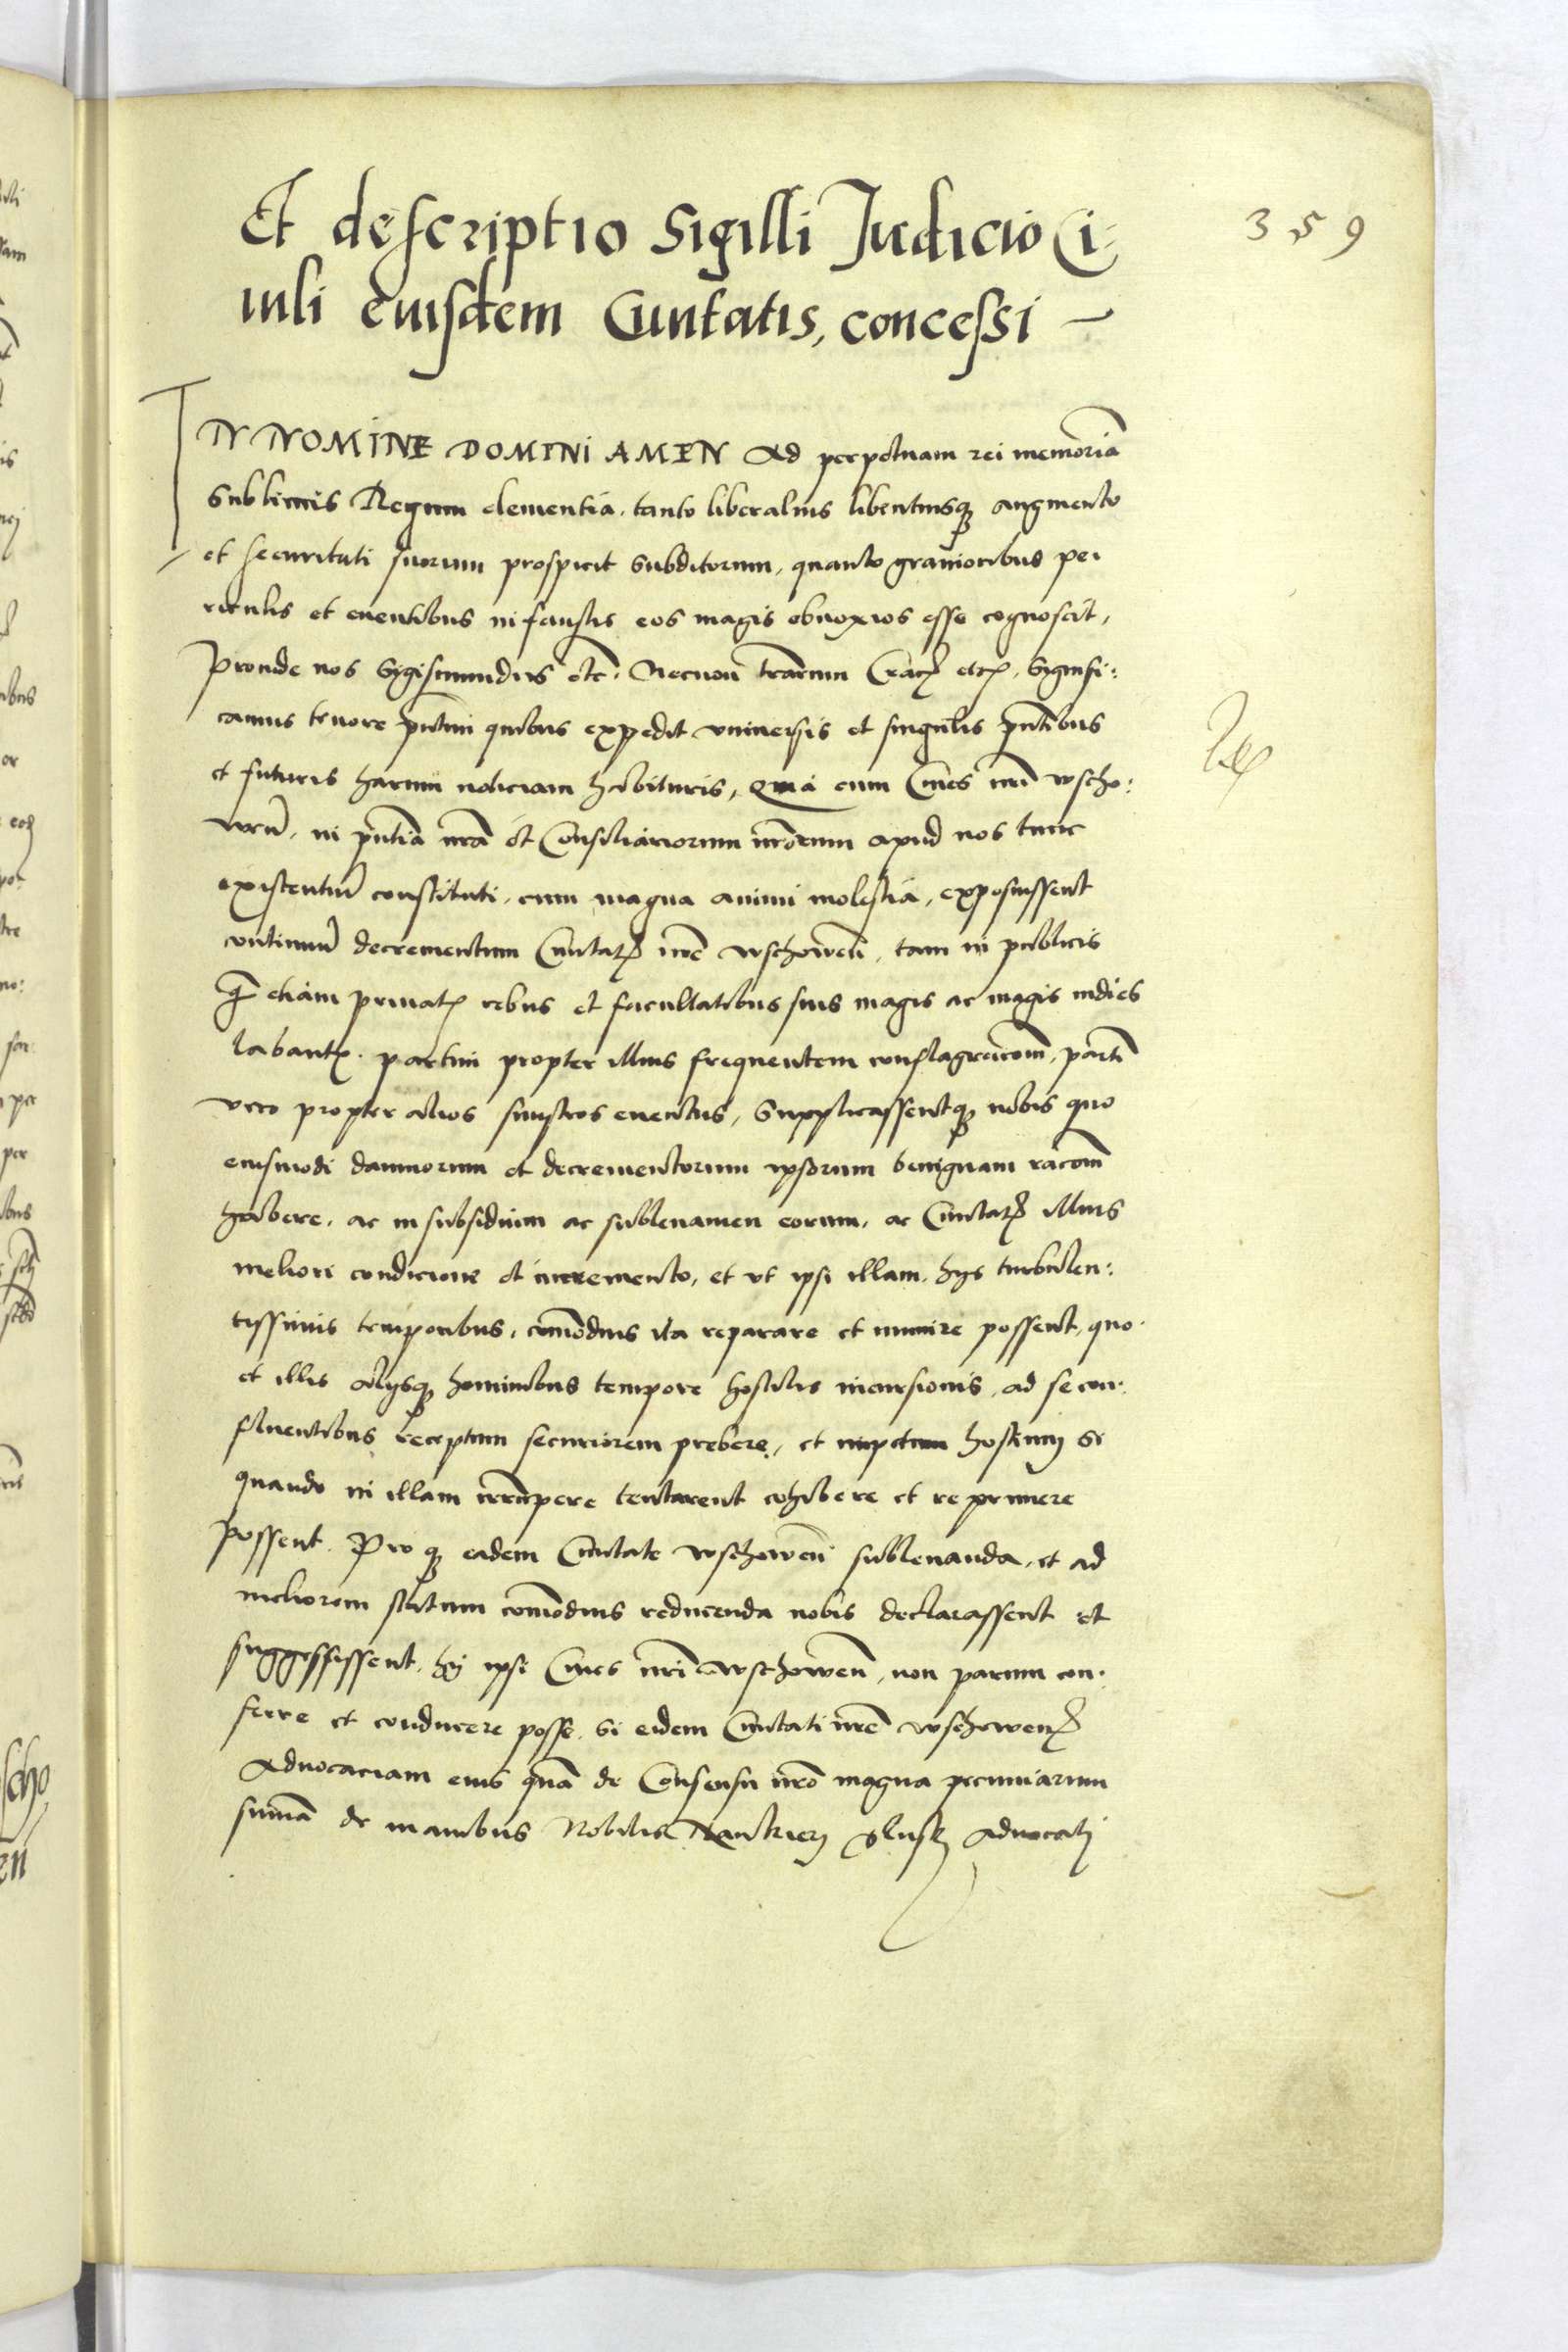 359
Et descriptio Sigilli Judicio Ci-
uili eiusdem Ciuitatis, concessi —
IN NOMINE DOMINI AMEN Ad perpetuam rei memoriā
Sublimis Regum clementia, tanto liberalius libentiusq; augmento
et securitati suorum prospicit subditorum, quanto grauioribus pe-
riculis et euentibus infaustis eos magis obnoxios esse cognoscit,
Proinde nos Sigismundus etc. Necnon trarum etc. Signifi:
camus tenore pntium quibus expedit vniuersis et singulis pntibus
et futuris harum noticiam habituris, Quia cum Ciues nri wscho:
wen̄, in pntia nra et Consiliariorum nrorum apud nos tunc
existentiū constituti, cum magna animi molestia, exposuissent
continuū decrementum Ciuitatis nre wschowen̄, tam in publicis
q̄ etiam priuatis rebus et facultatibus suis magis ac magis indies
labantis. partim propter illius frequentem conflagracōem, partī
vero propter alios sinistros euentus, Supplicassentq; nobis quo
eiusmodi damnorum et decrementorum ipsorum benignam racōem
habere, ac in subsidium ac subleuamen eorum, ac Ciuitatis illius
meliori condicione et incremento, et vt ipsi illam, hijs turbulen:
tissimis temporibus, comōdius ita reparare et munire possent, quo
et illis alijsq; hominibus tempore hostilis incursionis, ad se con-
fluentibus receptum securiorem prebere, et impetum hostium si
quando in illam irrūpere tentarent cohibere et reprimere
possent. Pro q; eadem Ciuitate wschowen̄ subleuanda, et ad
meliorem statum comōdius reducenda nobis declarassent et
suggessissent, hij ipsi Ciues nri wschowen̄, non parum con-
ferre et conducere posse, si eidem Ciuitati nre wschowen̄
Aduocaciam eius quā de Consensu nro magna pecuniarum
summā de manibus Nobilis aduocati